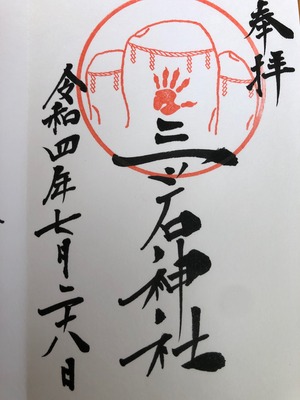 奉拝
三ツ石神社
令和四年七月二十八日